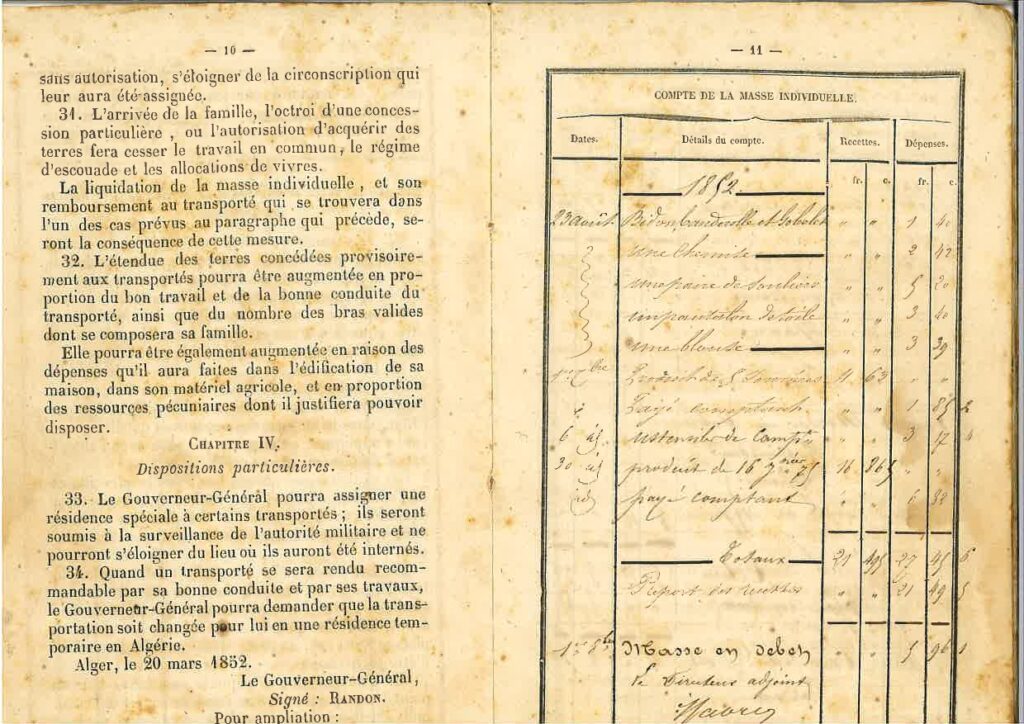 — 10 —
sans autorisation, s'éloigner de la circonscription qui
leur aura été assignée.
31. L'arrivée de la famille, l'octroi d'une conces-
sion particulière , ou l'autorisation d'acquérir des
terres fera cesser le travail en commun, le régime
d'escouade et les allocations de vivres.
La liquidation de la masse individuelle , et son
remboursement au transporté qui se trouvera dans
l'un des cas prévus au paragraphe qui précède, se-
ront la conséquence de cette mesure.
32. L'étendue des terres concédées provisoire-
ment aux transportés pourra être augmentée en pro-
portion du bon travail et de la bonne conduite du
transporté, ainsi que du nombre des bras valides
dont se composera sa famille.
Elle pourra être également augmentée en raison des
dépenses qu'il aura faites dans l'édification de sa
maison, dans son matériel agricole, et en proportion
des ressources pécuniaires dont il justifiera pouvoir
disposer.
CHAPITRE IV.
Dispositions particulières.
33. Le Gouverneur-Général pourra assigner une
résidence spéciale à certains transportés ; ils seront
soumis à la surveillance de l'autorité militaire et ne
pourront s'éloigner du lieu où ils auront été internés.
34. Quand un transporté se sera rendu recom-
mandable par sa bonne conduite et par ses travaux,
le Gouverneur-Général pourra demander que la trans-
portation soit changée pour lui en une résidence tem-
poraire en Algérie.
Alger, le 20 mars 1852.
Le Gouverneur-Général,
Signé : RANDON.
Pour ampliation :
— 11 —
COMPTE DE LA MASSE INDIVIDUELLE.
Dates. Détails du compte. Recettes. Dépenses.
fr. c. fr. c.
1852
23 août Bidon banderolle et Gobelet " " 1 40
une chemise " " 2 42
une paire de souliers " " 5 20
un pantalon de toile " " 3 40
une blouse " " 3 39
Produit de 5 Journées 4 63 " "
Payé comptant " " 1 85 2
6 id ustensiles de camp " " 3 17 4
30 id produit de 16 J 75 16 865 " "
id payé comptant " " 6 32
Totaux 21 495 27 45 6
Report des recettes " " 21 49 5
1er 8bre Masse en debet 5 96 1
Le Directeur adjoint